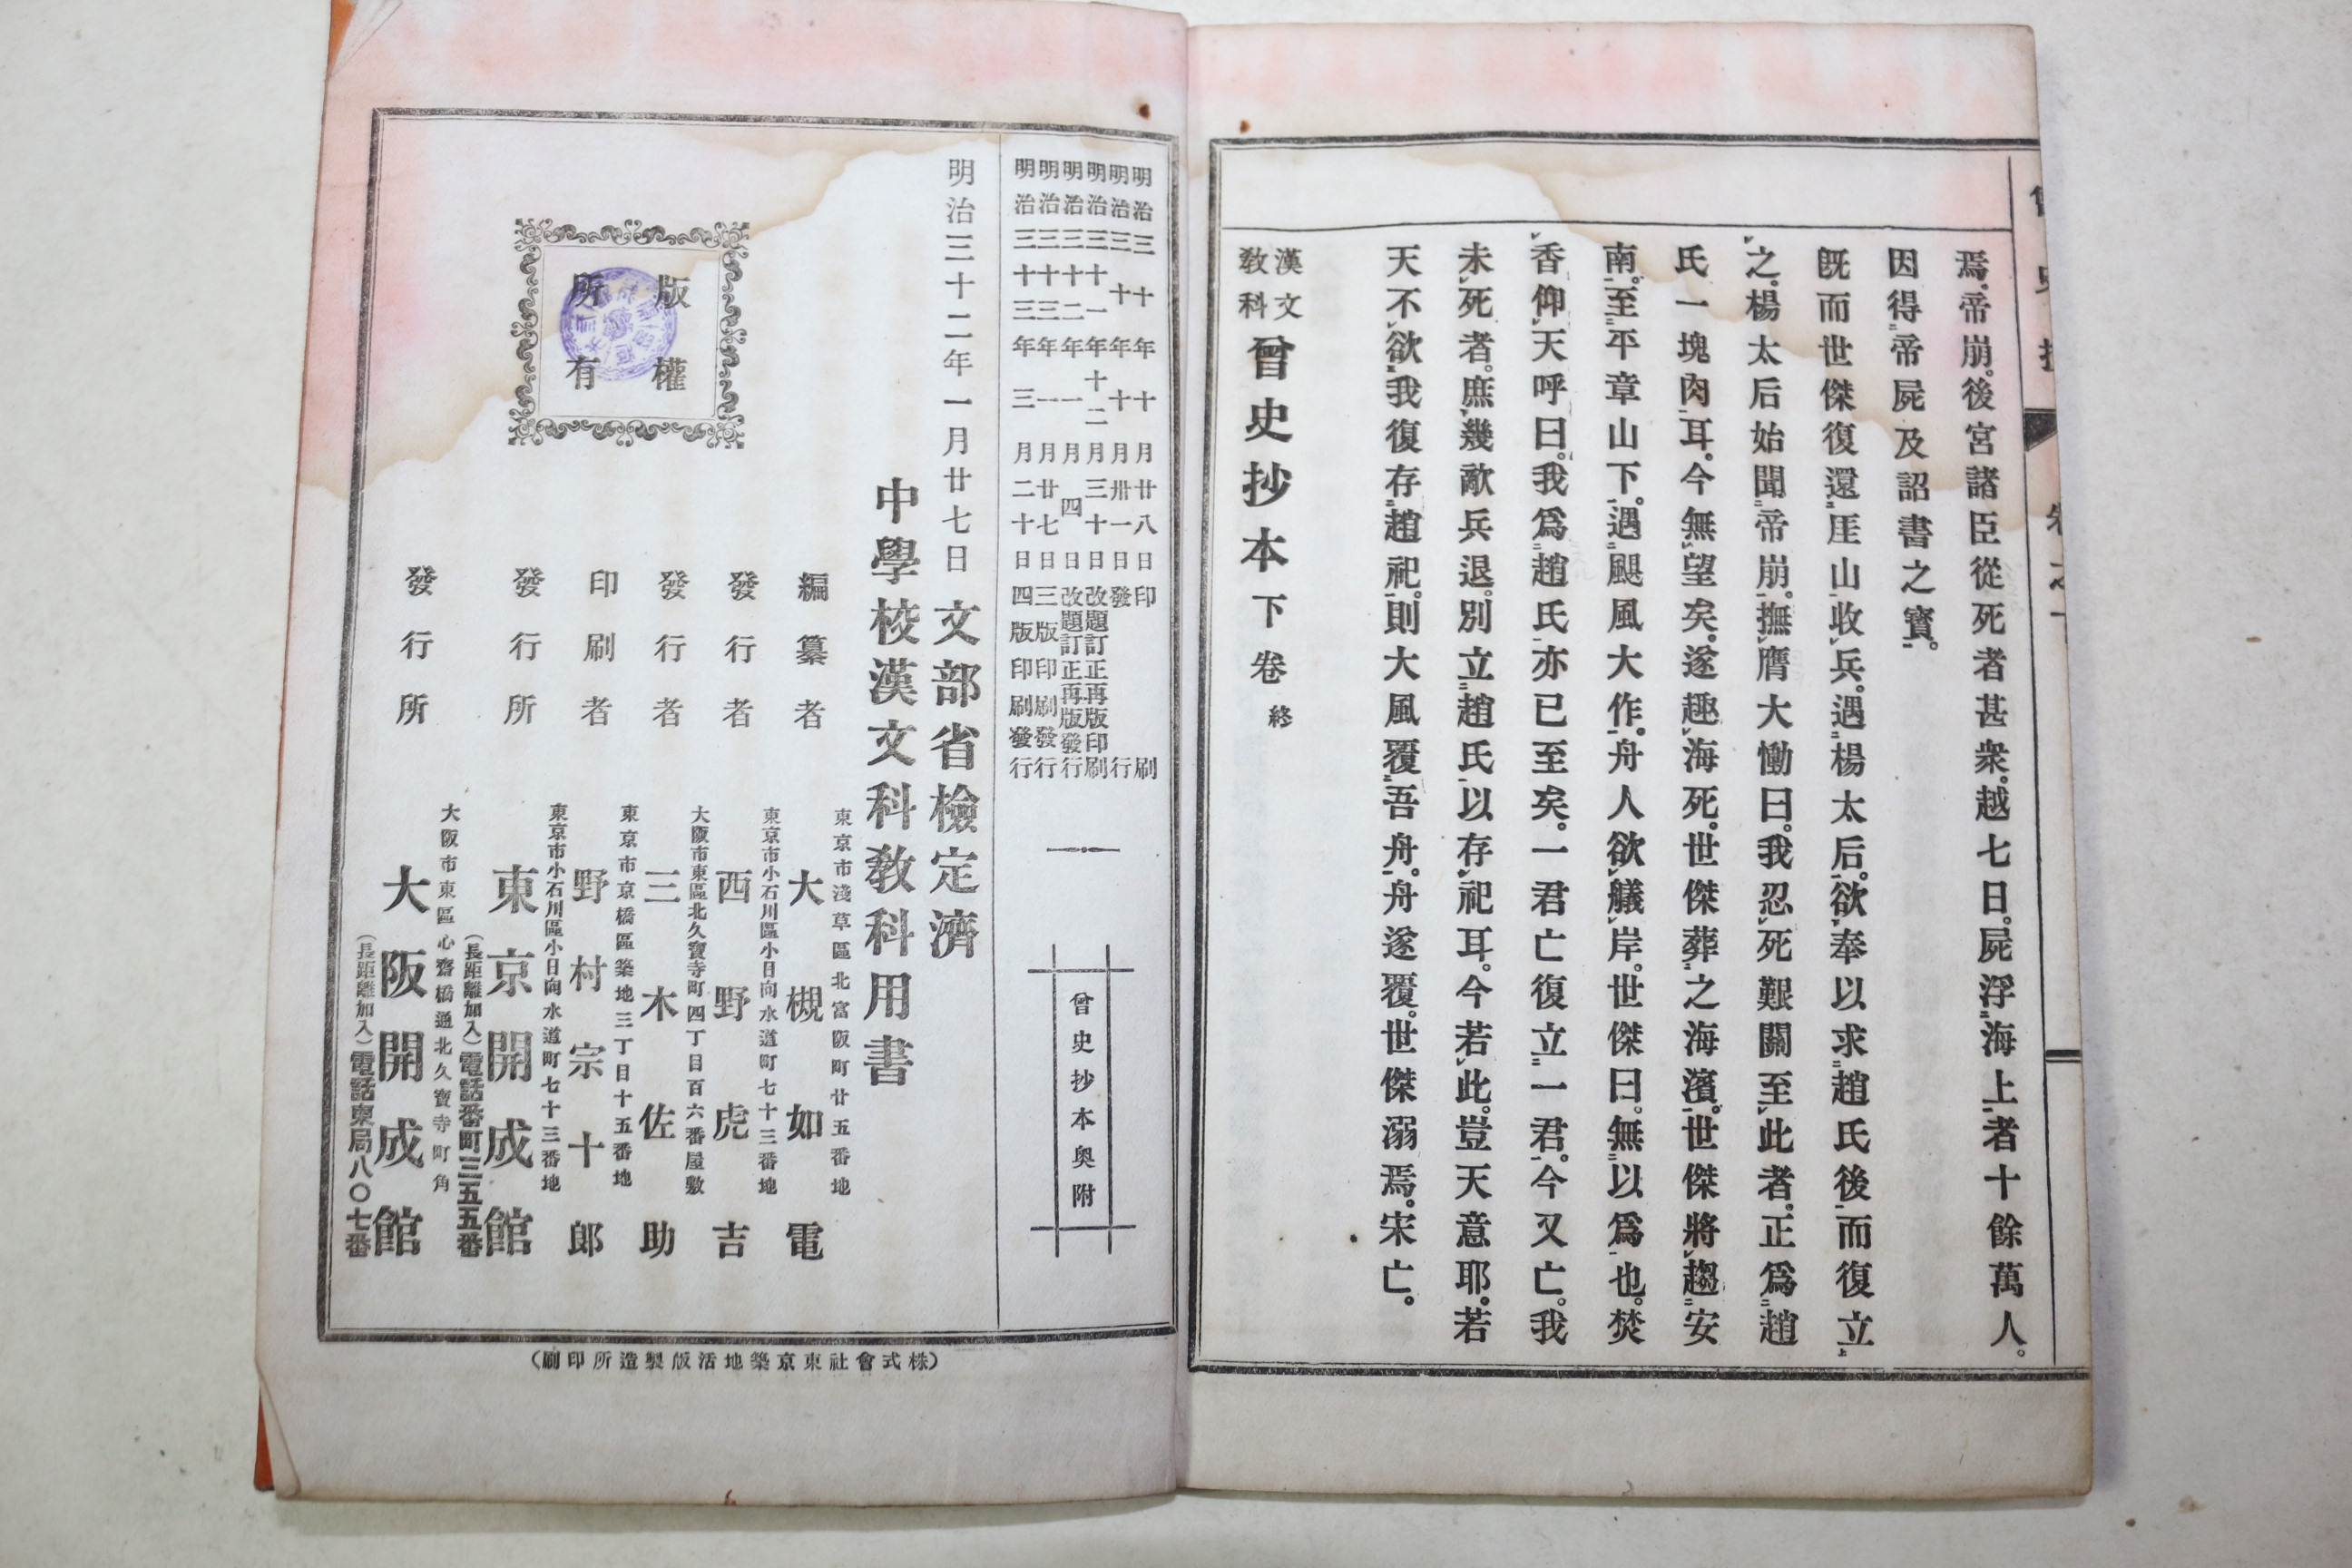 焉。帝崩。後宮諸臣從死者甚衆。越七日。屍浮海上者十餘萬人。
因得帝屍及詔書之寶。
既而世傑復還厓山收兵。遇楊太后。欲奉以求趙氏後而復立
之。楊太后始聞帝崩。撫膺大慟曰。我忍死艱關至此者。正爲趙
氏一塊肉耳。今無望矣。遂趣海死。世傑葬之海濱。世傑將趨安
南。至平章山下。遇颶風大作。舟人欲艤岸。世傑曰。無以爲也。焚
香仰天呼曰。我爲趙氏亦已至矣。一君亡復立一君。今又亡。我
未死者。庶幾敵兵退。別立趙氏以存祀耳。今若此。豈天意耶。若
天不欲我復存趙祀。則大風覆吾舟。舟遂覆。世傑溺焉。宋亡。
漢文教科 曾史抄本下卷 終
明治三十年十月廿八日印刷
明治三十年十月卅一日發行
明治三十一年十二月三十日改題訂正再版印刷
明治三十二年一月四日改題訂正再版發行
明治三十三年一月廿七日三版印刷發行
明治三十三年三月二十日四版印刷發行
曾史抄本奧附
明治三十二年一月廿七日 文部省檢定濟
中學校漢文科教科用書
版權
所有
東京市淺草區北富阪町廿五番地
編纂者 大槻如電
東京市小石川區小日向水道町七十三番地
發行者 西野虎吉
大阪市東區北久寶寺町四丁目百六番屋敷
發行者 三木佐助
東京市京橋區築地三丁目十五番地
印刷者 野村宗十郎
東京市小石川區小日向水道町七十三番地
發行所 東京開成館
(長距離加入)電話番町三五五番
大阪市東區心齋橋通北久寶寺町角
發行所 大阪開成館
(長距離加入)電話東局八〇七番
(株式會社東京築地活版製造所印刷)